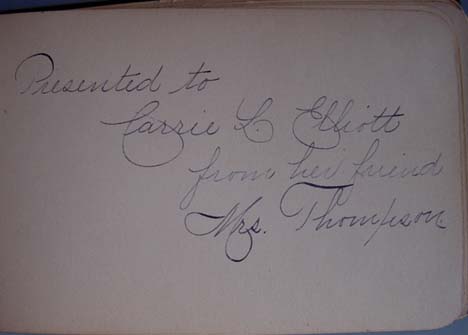 Presented to
Carrie L. Elliott
from her friend
Mrs. Thompson.